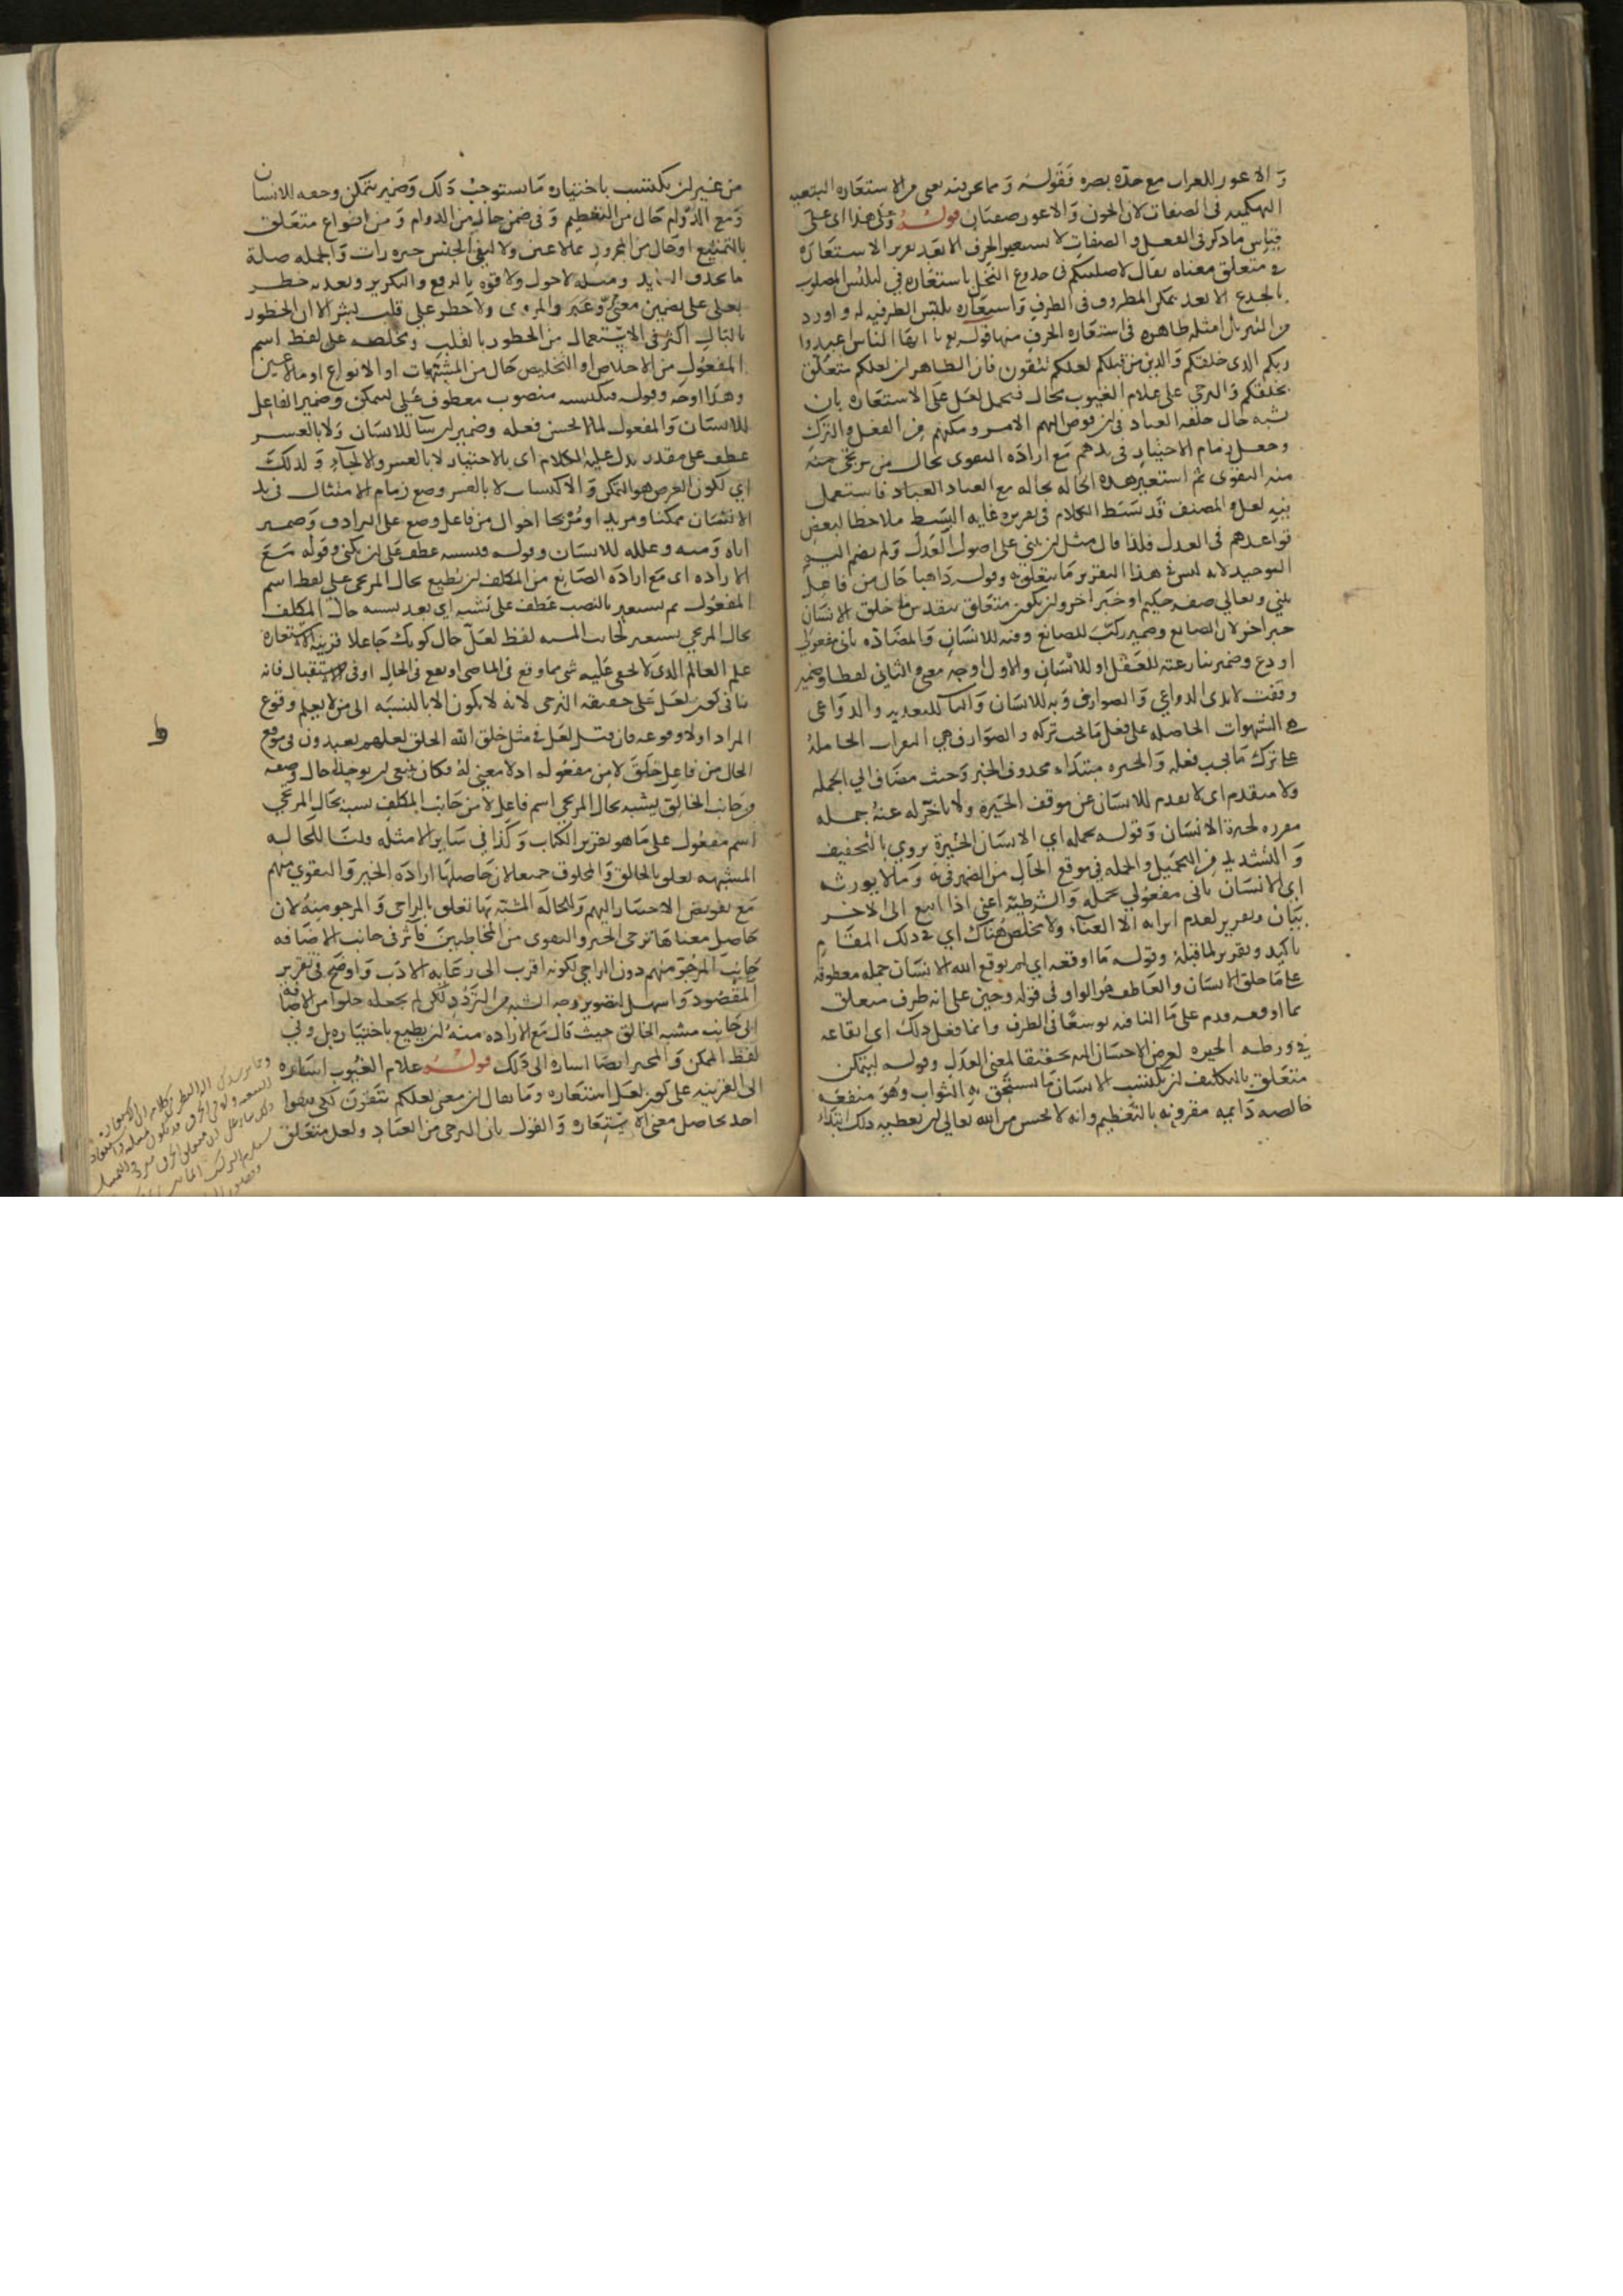 و الاعور للغراب مع حدة بصره فقوله و ما عرينه يعني من الاستعارة التبعية
التهكمية في الصفات لان الجون و الاعور صفتان قوله وعلى هذا اي على
قياس ما ذكر في الفعل و الصفات لا يستعير الحرف الا بعد تقرير الاستعارة
في متعلق معناه يقال لاصلبنكم في جذوع النخل باستعارة في لتلبس المصلوب
بالجذع الا بعد تمكن المظروف في الظرف و استعارة تلبس الظرفية له و اورد
من التنزيل امثلة ظاهرة في استعارة الحرف منها قوله تعالى يا ايها الناس اعبدوا
ربكم الذي خلقكم والذين من قبلكم لعلكم تتقون فان الظاهر ان لعلكم متعلق
بخلقكم و الترجي على علام الغيوب محال فتحمل لعل على الاستعارة بان
شبه حال خلقه العباد في ان فوض اليهم الامر و مكنهم من الفعل والترك
وجعل زمام الاختيار في يدهم مع ارادة التقوى بحال من يرتجى
منه التقوى ثم استعير هذه الحالة بحاله مع العباد العباد فاستعمل
فيه لعل و المصنف قد بسط الكلام في تقريره غاية البسط ملاحظا لبعض
قواعدهم في العدل فلذا قال مثل ان يبني على اصول العدل ولم يضم اليه
التوحيد لانه ليس في هذا التقرير ما يتعلق به وقوله ذاهبا حال من فاعل
يبني وتعالى صفة حكيم او خبر اخر وان يكون متعلق بتقدس ما خلق الانسان
خبر اخر لان الصانع وضمير ركب للصانع وفيه للانسان والمضادة ثاني مفعولي
اودع وضمير نازعته للعقل او للانسان والاول اوجه معنى والثاني لفظا وضمير
وقفت لايدي الدواعي و الصوارف وبه للانسان والباء للتعدية والدواعي
هي الشهوات الحاصلة على فعل ما يجب تركه والصوارف هي النفرات الحاملة
على ترك ما يجب فعله و الحيرة مبتداء محذوف الخبر وحيث مضاف الى الجملة
ولا متقدم اي لا تقدم للانسان عن موقف الحيرة ولا تاخر له عنه جملة
مقررة لحيرة الانسان وقوله تحمله اي الانسان الحيرة يروي بالتخفيف
و التشديد من التحميل والجملة في موقع الحال من الضمير فيه وما لا يورثه
اي الانسان ثاني مفعولي تحمله والشرطية اعني اذا اتبع الى الاخر
بيان وتقرير لعدم ايراثه الا العناء ولا مخلص هناك اي في ذلك المقام
تاكيد وتقرير لما قبله وقوله ما اوقعه اي لم يوقع الله الانسان جملة معطوفة
على ما خلق الانسان والعاطف هو الواو في قوله وحين على انه ظرف متعلق
بما اوقعه قدم على ما النافية توسعا في الظرف وانما فعل ذلك اي ايقاعه
في ورطة الحيرة لغرض الاحسان اليه تحقيقا لمعنى العدل وقوله ليتمكن
متعلق بالتكليف ان يكتسب الانسان ما يستحق به الثواب وهو منفعة
خالصة دايمة مقرونة بالتعظيم وانه لا يحسن من الله تعالى ان يعطيه ذلك ابتداء
من غير ان يكتسب باختياره ما يستوجب ذلك وضمير يتمكن وحقه للانسان
ومع الدوام حال من التعظيم وفي ضمن حاله من الدوام ومن انواع متعلق
بالتمتيع او حال من المجرور بما لا عين ولا لنفي الجنس خبره رات و الجملة صلة
ما بحذف العايد ومثله لاحول ولا قوة بالرفع والتكرير وتعدية خطر
بعلى على تضمين معنى وغير والمروي ولا خطر على قلب بشر الا ان الخطور
بالبال اكثر في الاستعمال من الخطور بالقلب ومخلصة على لفظ اسم
المفعول من الاخلاص او التخليص حال من المشتهيات او الانواع او ما لا عين
وهذا اوجه وقوله فيكتسبه منصوب معطوف على ليتمكن وضمير الفاعل
للانسان والمفعول لما لا يحسن فعله وضمير ان شا للانسان ولا بالقسر
عطف على مقدر يدل عليه الكلام اي بالاختيار لا بالقسر والالجاء ولذلك
اي لكون الغرض هو التمكن والاكتساب لا بالقسر وضع زمام الامتثال في يد
الانسان ممكنا ومريدا ومزيحا احوال من فاعل وضع على الترادف وضمير
اياه ومنه وعلله للانسان وقوله فيشبه عطف على ان يكنى وقوله مع
الارادة اي مع ارادة الصانع من المكلف ان يطيع بحال المرتجى على لفظ اسم
المفعول ثم يستعير بالنصب عطف على تشبه اي بعد تشبيه حال المكلف
بحال المرتجى يستعير لجانب المشبه لفظ لعل حال كونك جاعلا قرينة الاستعارة
علم العالم الذي لا يخفى عليه شي مما وقع في الماضي او يقع في الحال او في الاستقبال فانه
ينافي كون لعل على حقيقة الترجي لانه لا يكون الا بالنسبة الى من لا يعلم وقوع
المراد او لا وقوعه فان قيل لعل في مثل خلق الله الخلق لعلهم يعبدون في موقع
الحال من فاعل خلق لا من مفعوله اذ لا معنى له فكان ينبغي ان يوخذ حال وصفه
من جانب الخالق يشبه بحال المرتجي اسم فاعل لا من جانب المكلف يشبه بحال المرتجى
اسم مفعول على ما هو تقرير الكتاب وكذا في ساير الامثلة قلنا للحالة
المشبهة تعلق بالخالق والمخلوق جميعا لان حاصلها ارادة الخير والتقوى منهم
مع تفويض الاختيار اليهم وللحالة المشبه بها تعلق بالراجي و المرجو منه لان
حاصل معناها ترجى الخير والتقوى من المخاطبين فاثر في جانب الاضافة
جانب المرجو منهم دون الراجي لكونه اقرب الى رعاية الادب و اوضح في تقرير
المقصود واسهل لتصوير وجه الشبه من التردد لكن لم يجعله خلوا من الاضافة
الى جانب مشبه الخالق حيث قال مع الارادة منه ان يطيع باختياره بل وفي
لفظ الممكن و المخير ايضا اشارة الى ذلك قوله علام الغيوب اشارة
الى القرينة على كون لعل استعارة وما يقال ان معنى لعلكم تتقون لكي تتقوا
اخذ بحاصل معنى الاستعارة و القول بان الترجي من العباد ولعل متعلق